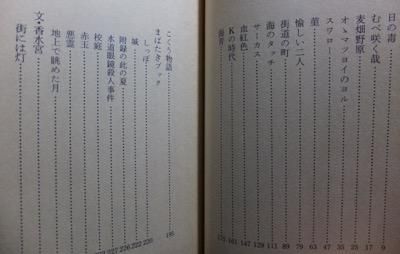 日の毒 9
むべ咲く哉 17
麦畑野原 25
オヽマツヨイのヨル 35
スワロー 47
菫 63
愉しい二人 79
街道の町 89
海のタッチ 111
サーカス 129
血紅色 147
Kの時代 161
こくう物語 195
まばたきブック
しっぽ
城
附録の此の夏
水道眼鏡殺人事件
校庭
赤玉
悪霊
地上で眺めた月
文・香水宮
街には灯